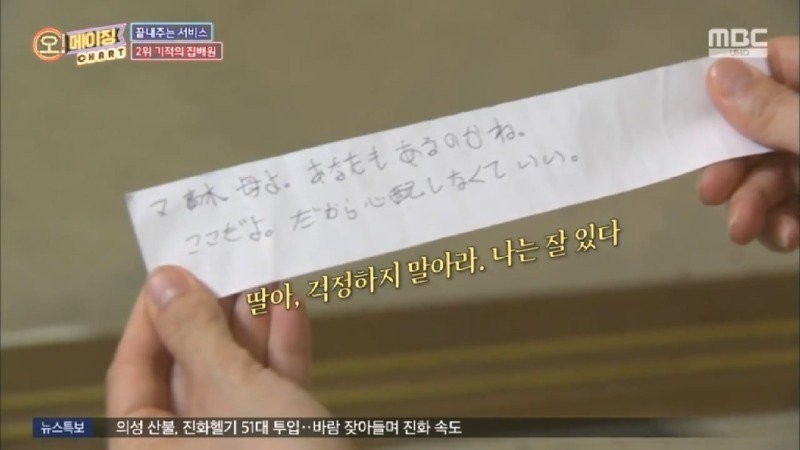 오! 메이징
CHART
끝내주는 서비스
2위 기적의 집배원
MBC
UHD
母よ。あなたも あるのかね。
ここだよ。だから心配しなくていい。
딸아, 걱정하지 말아라. 나는 잘 있다
뉴스특보 의성 산불, 진화헬기 51대 투입‥바람 잦아들며 진화 속도